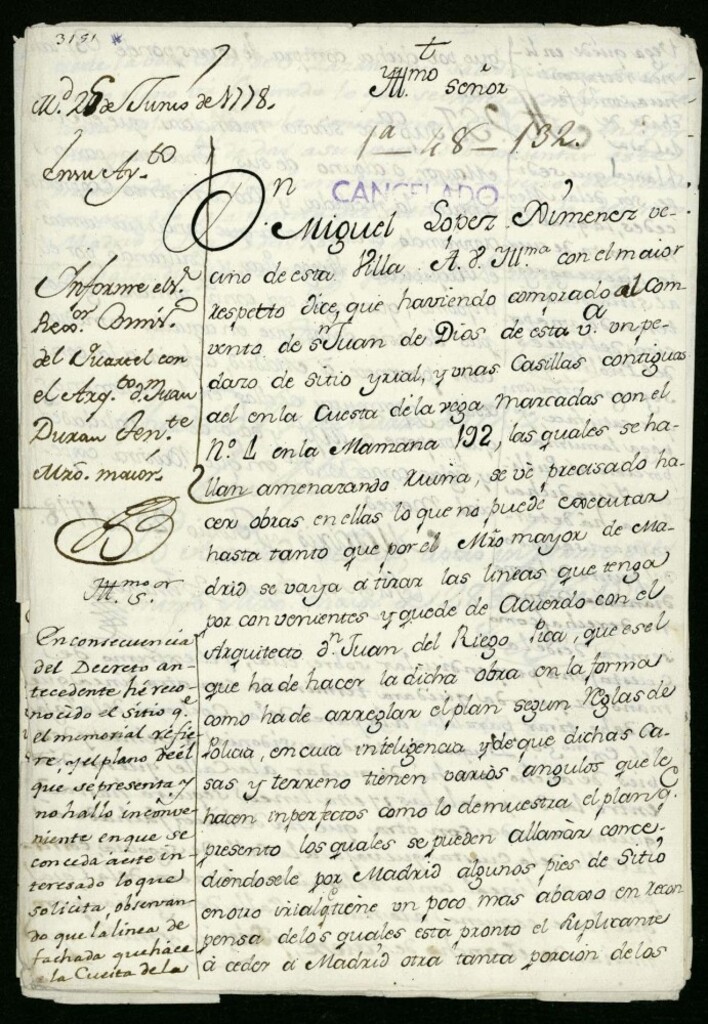 3181 *
M.d 26 de Junio de 1778.
En su Ay.to
Informe el S.r
Rexor. Comis.o
del Quartel con
el Arq.to d.n Juan
Duran Ten.te
Mro. maior.
Ill.mo S.or
En consecuencia
del Decreto an-
tecedente hé reco-
nocido el Sitio q.e
el memorial refie-
re, y el plano de él
que se presenta y
no hallo inconve-
niente en que se
conceda a este in-
teresado lo que
solicita, observan-
do que la linea de
fachada que hace
a la Cuesta de la
t
Ill.mo Señor
1a - 48 - 132.
CANCELADO
D.n Miguel Lopez Ximenez ve-
cino de esta Villa A. V. Yll.ma con el maior
respetto dice, que haviendo comprado al Com-
vento de s.n Juan de Dios de esta v.a un pe-
dazo de sitio yrial, y unas Casillas contiguas
a el en la Cuesta de la vega Marcadas con el
N.o 1 en la Manzana 192, las quales se ha-
llan amenazando Ruina, se vé precisado ha-
cer obras en ellas lo que no puede executar
hasta tanto que por el Mro mayor de Ma-
drid se vaya a tirar las lineas que tenga
por convenientes y quede de Acuerdo con el
Arquitecto d.n Juan del Riego Pica, que es el
que ha de hacer la dicha obra en la forma
como ha de arreglar el plan segun Reglas de
Policia, en cuia inteligencia y de que dichas Ca-
sas y terreno tienen varios angulos que le
hacen inperfectos como lo demuestra el plan q.e
presento los quales se pueden allanar conce-
diendosele por Madrid algunos pies de Sitio
en otro irial q.e tiene un poco mas abaxo en recom
pensa de los quales está pronto el Suplicante
à ceder à Madrid otra tanta porción de los